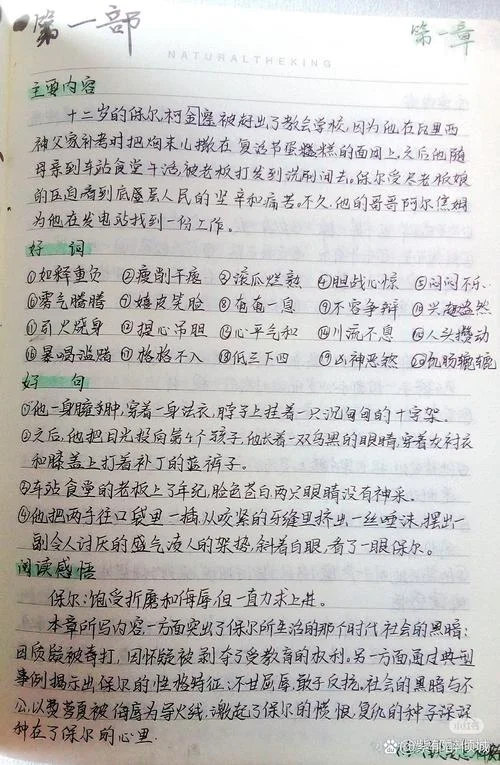 第一部
第一章
NATURALTHEKING
主要内容
十二岁的保尔.柯金被赶出了教会学校,因为他在瓦西
神父家补考时把烟末儿撒在复活节蛋糕的面团上,之后他随
母亲到车站食堂干活,被老板打发到洗刷间去。保尔受尽老板娘
的压迫看到底层人民的辛和痛苦。不久,他的哥哥阿尔焦姆
为他在发电站找到一份工作。
好词
①如释重负 ②瘦削干瘪 ③滚瓜烂熟 ④胆战心惊 ⑤闷闷不乐
⑥雾气腾腾 ⑦嬉皮笑脸 ⑧奄奄一息 ⑨不容争辩 ⑩兴趣盎然
⑪引火烧身 ⑫提心吊胆 ⑬心平气和 ⑭川流不息 ⑮人头攒动
⑯暴喝滥赌 ⑰格格不入 ⑱低三下四 ⑲凶神恶煞 ⑳饥肠辘辘
好句
①他一身臃肿,穿着一身法衣,脖子上挂着一只沉甸甸的十字架.
②之后,他把目光投向第4个孩子,他长着一双乌黑的眼睛,穿着灰衬衣
和膝盖上打着补丁的蓝裤子。
③车站食堂的老板上了年纪,脸色苍白两只眼睛没有神采.
④他把两手往口袋里一插,从咬紧的牙缝里挤出一丝唾沫,摆出一
副令人讨厌的盛气凌人的架势,斜着白眼,看了一眼保尔。
阅读感悟
保尔:饱受折磨和侮辱,但一直力求上进。
本章所写内容,一方面突出了保尔所生活的那个时代社会的黑暗:
因质疑被毒打,因怀疑被剥夺了受教育的权利。另一方面通过典型
事例揭示出保尔的性格特征:不甘屈辱,敢于反抗。社会的黑暗与不
公,以费萝夏被侮辱为导火线,激起了保尔的愤恨,复仇的种子深深
种在了保尔的心里.
小红书
紫郁丶倾城